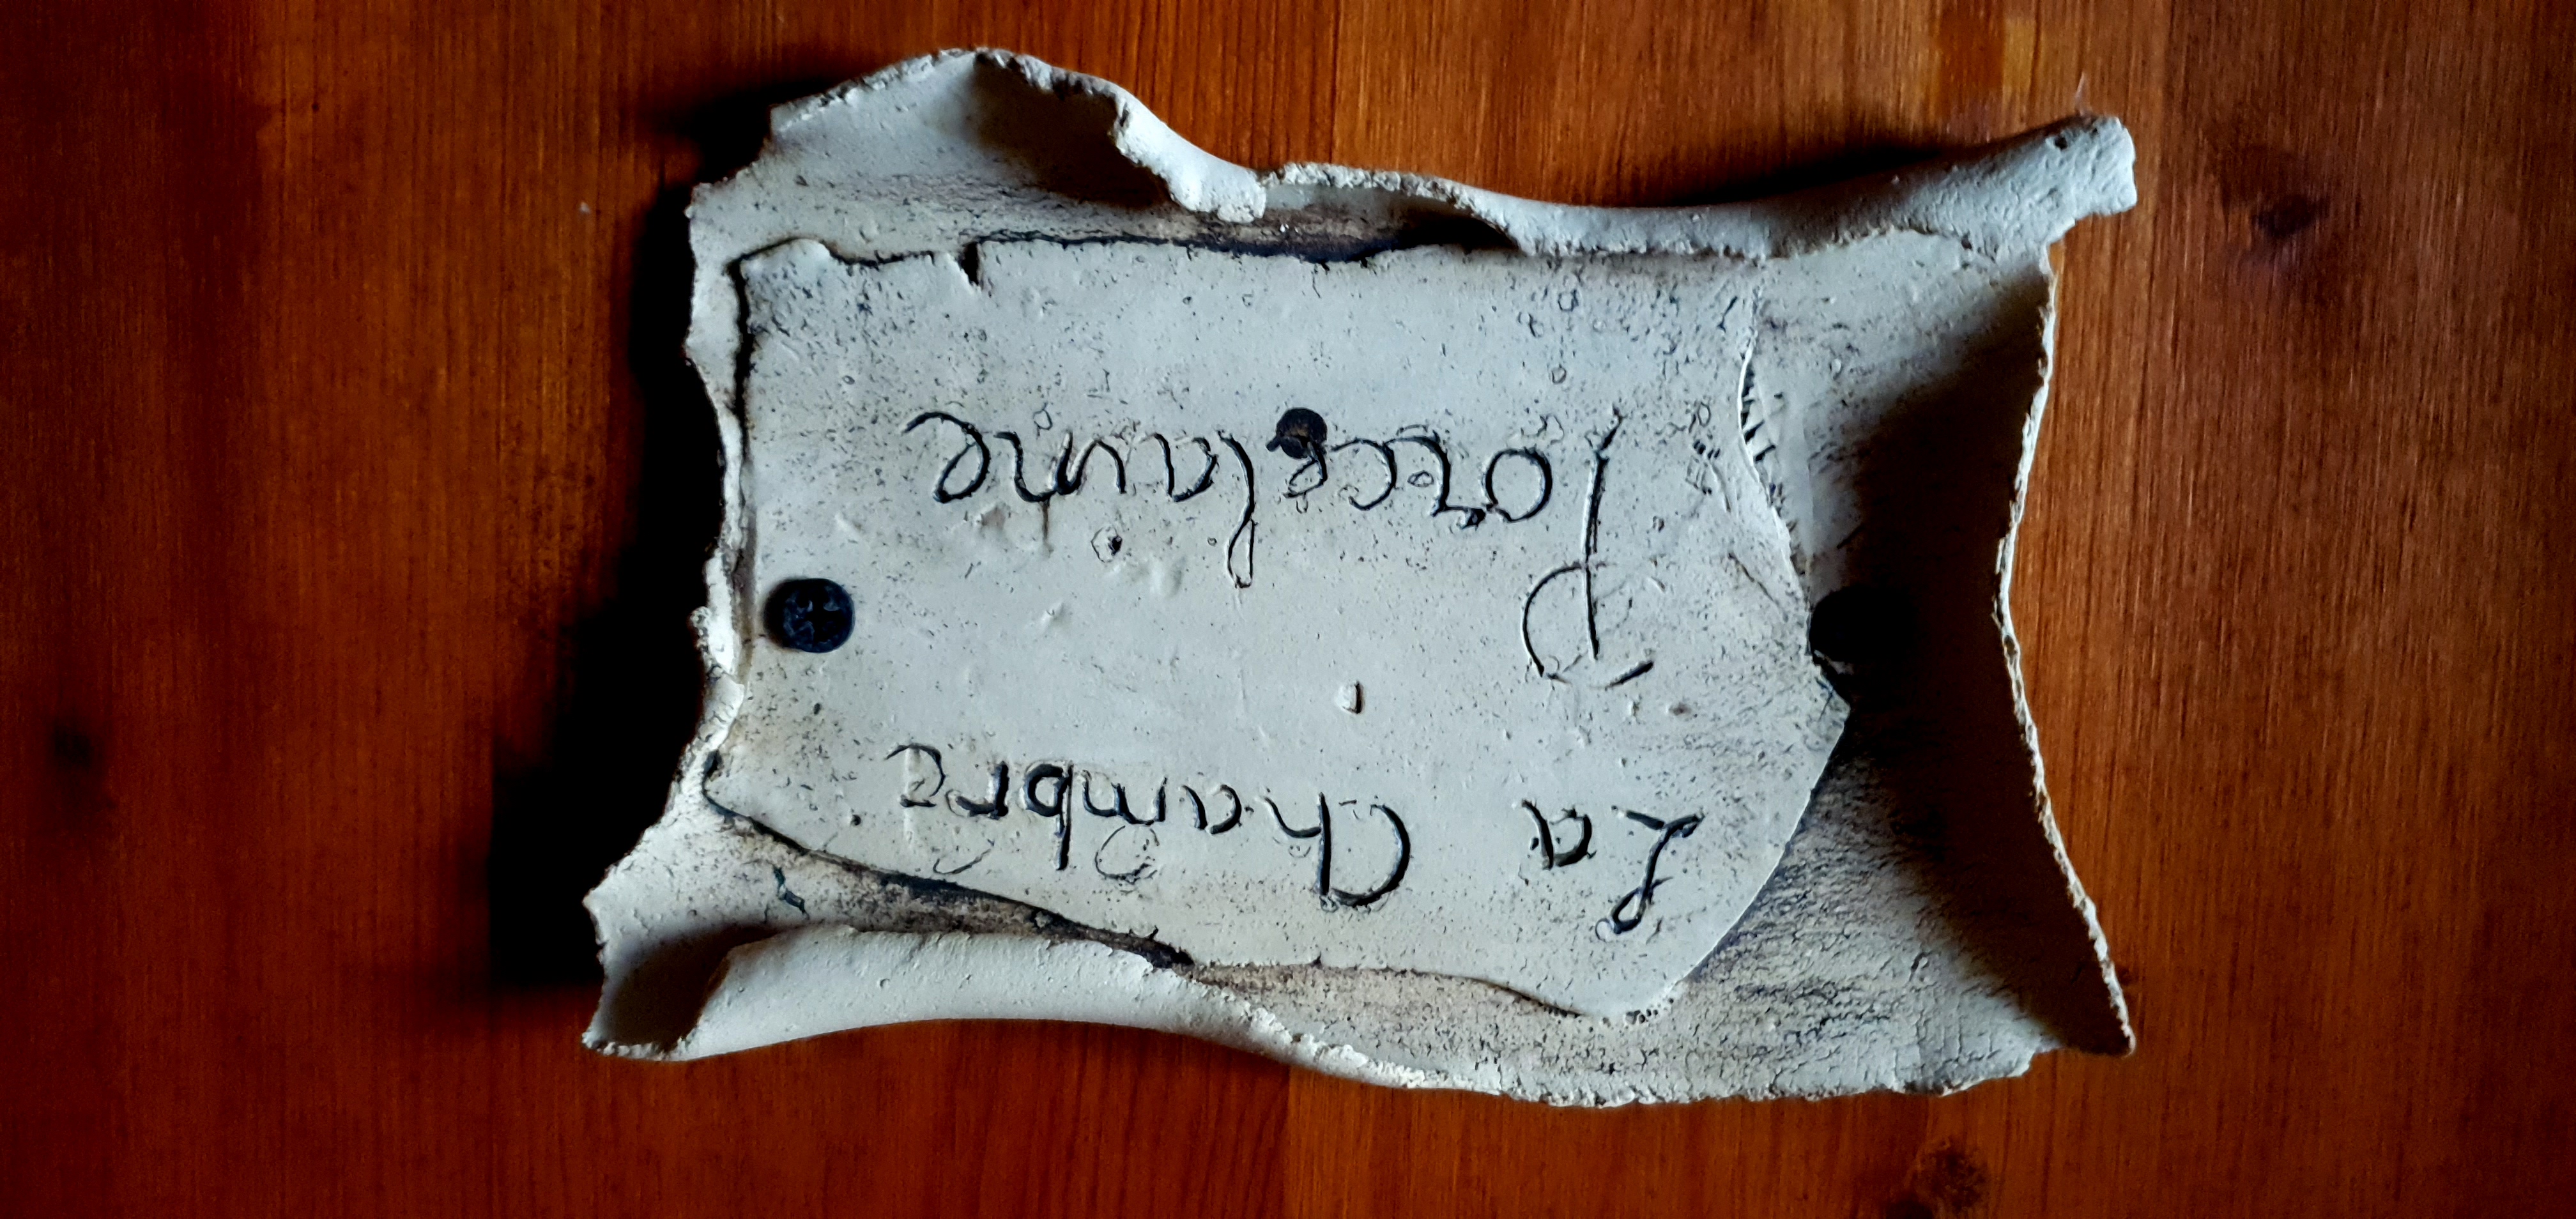 La Chambre
Porcelaine